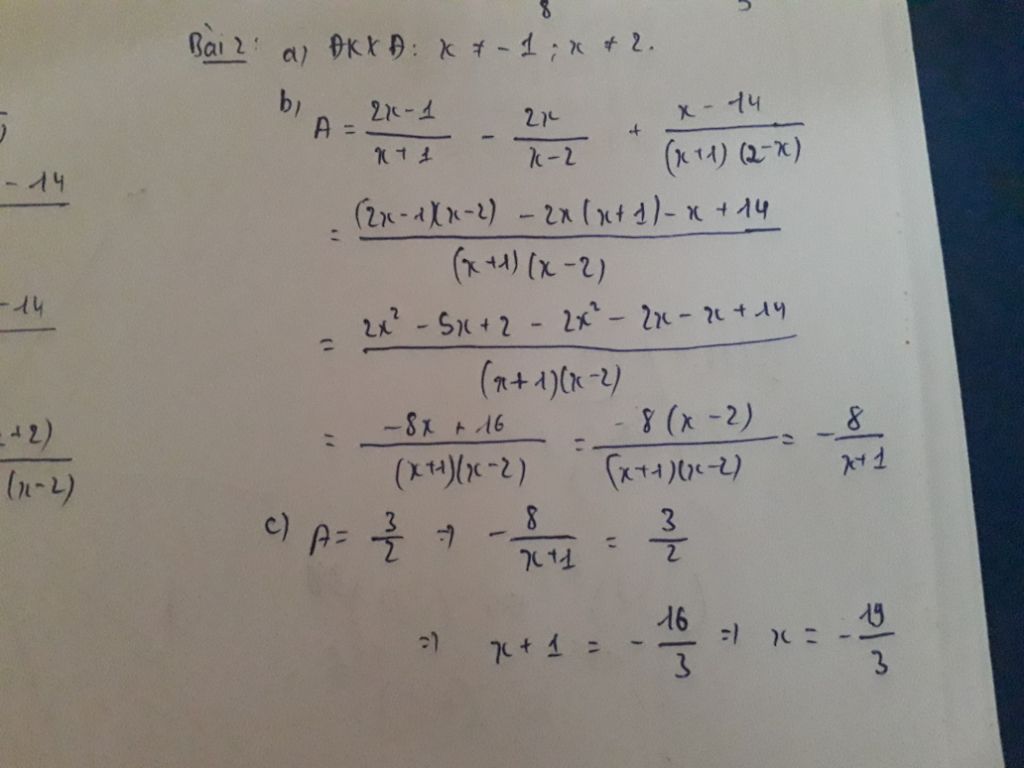 8
- 14
-14
+2)
(x-2)
Bài 2: a) ĐKXĐ: x ≠ -1 ; x ≠ 2.
b) A = \frac{2x-1}{x+1} - \frac{2x}{x-2} + \frac{x-14}{(x+1)(2-x)}
= \frac{(2x-1)(x-2) - 2x(x+1) - x + 14}{(x+1)(x-2)}
= \frac{2x² - 5x + 2 - 2x² - 2x - x + 14}{(x+1)(x-2)}
= \frac{-8x + 16}{(x+1)(x-2)} = \frac{-8(x-2)}{(x+1)(x-2)} = -\frac{8}{x+1}
c) A = \frac{3}{2} ⇒ -\frac{8}{x+1} = \frac{3}{2}
⇒ x + 1 = -\frac{16}{3} ⇒ x = -\frac{19}{3}